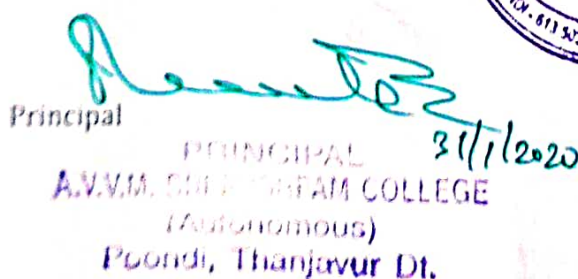 613 50
Principal
31/1/2020
PRINCIPAL
A.V.V.M. COLLEGE
(Autonomous)
Poondi, Thanjavur Dt.